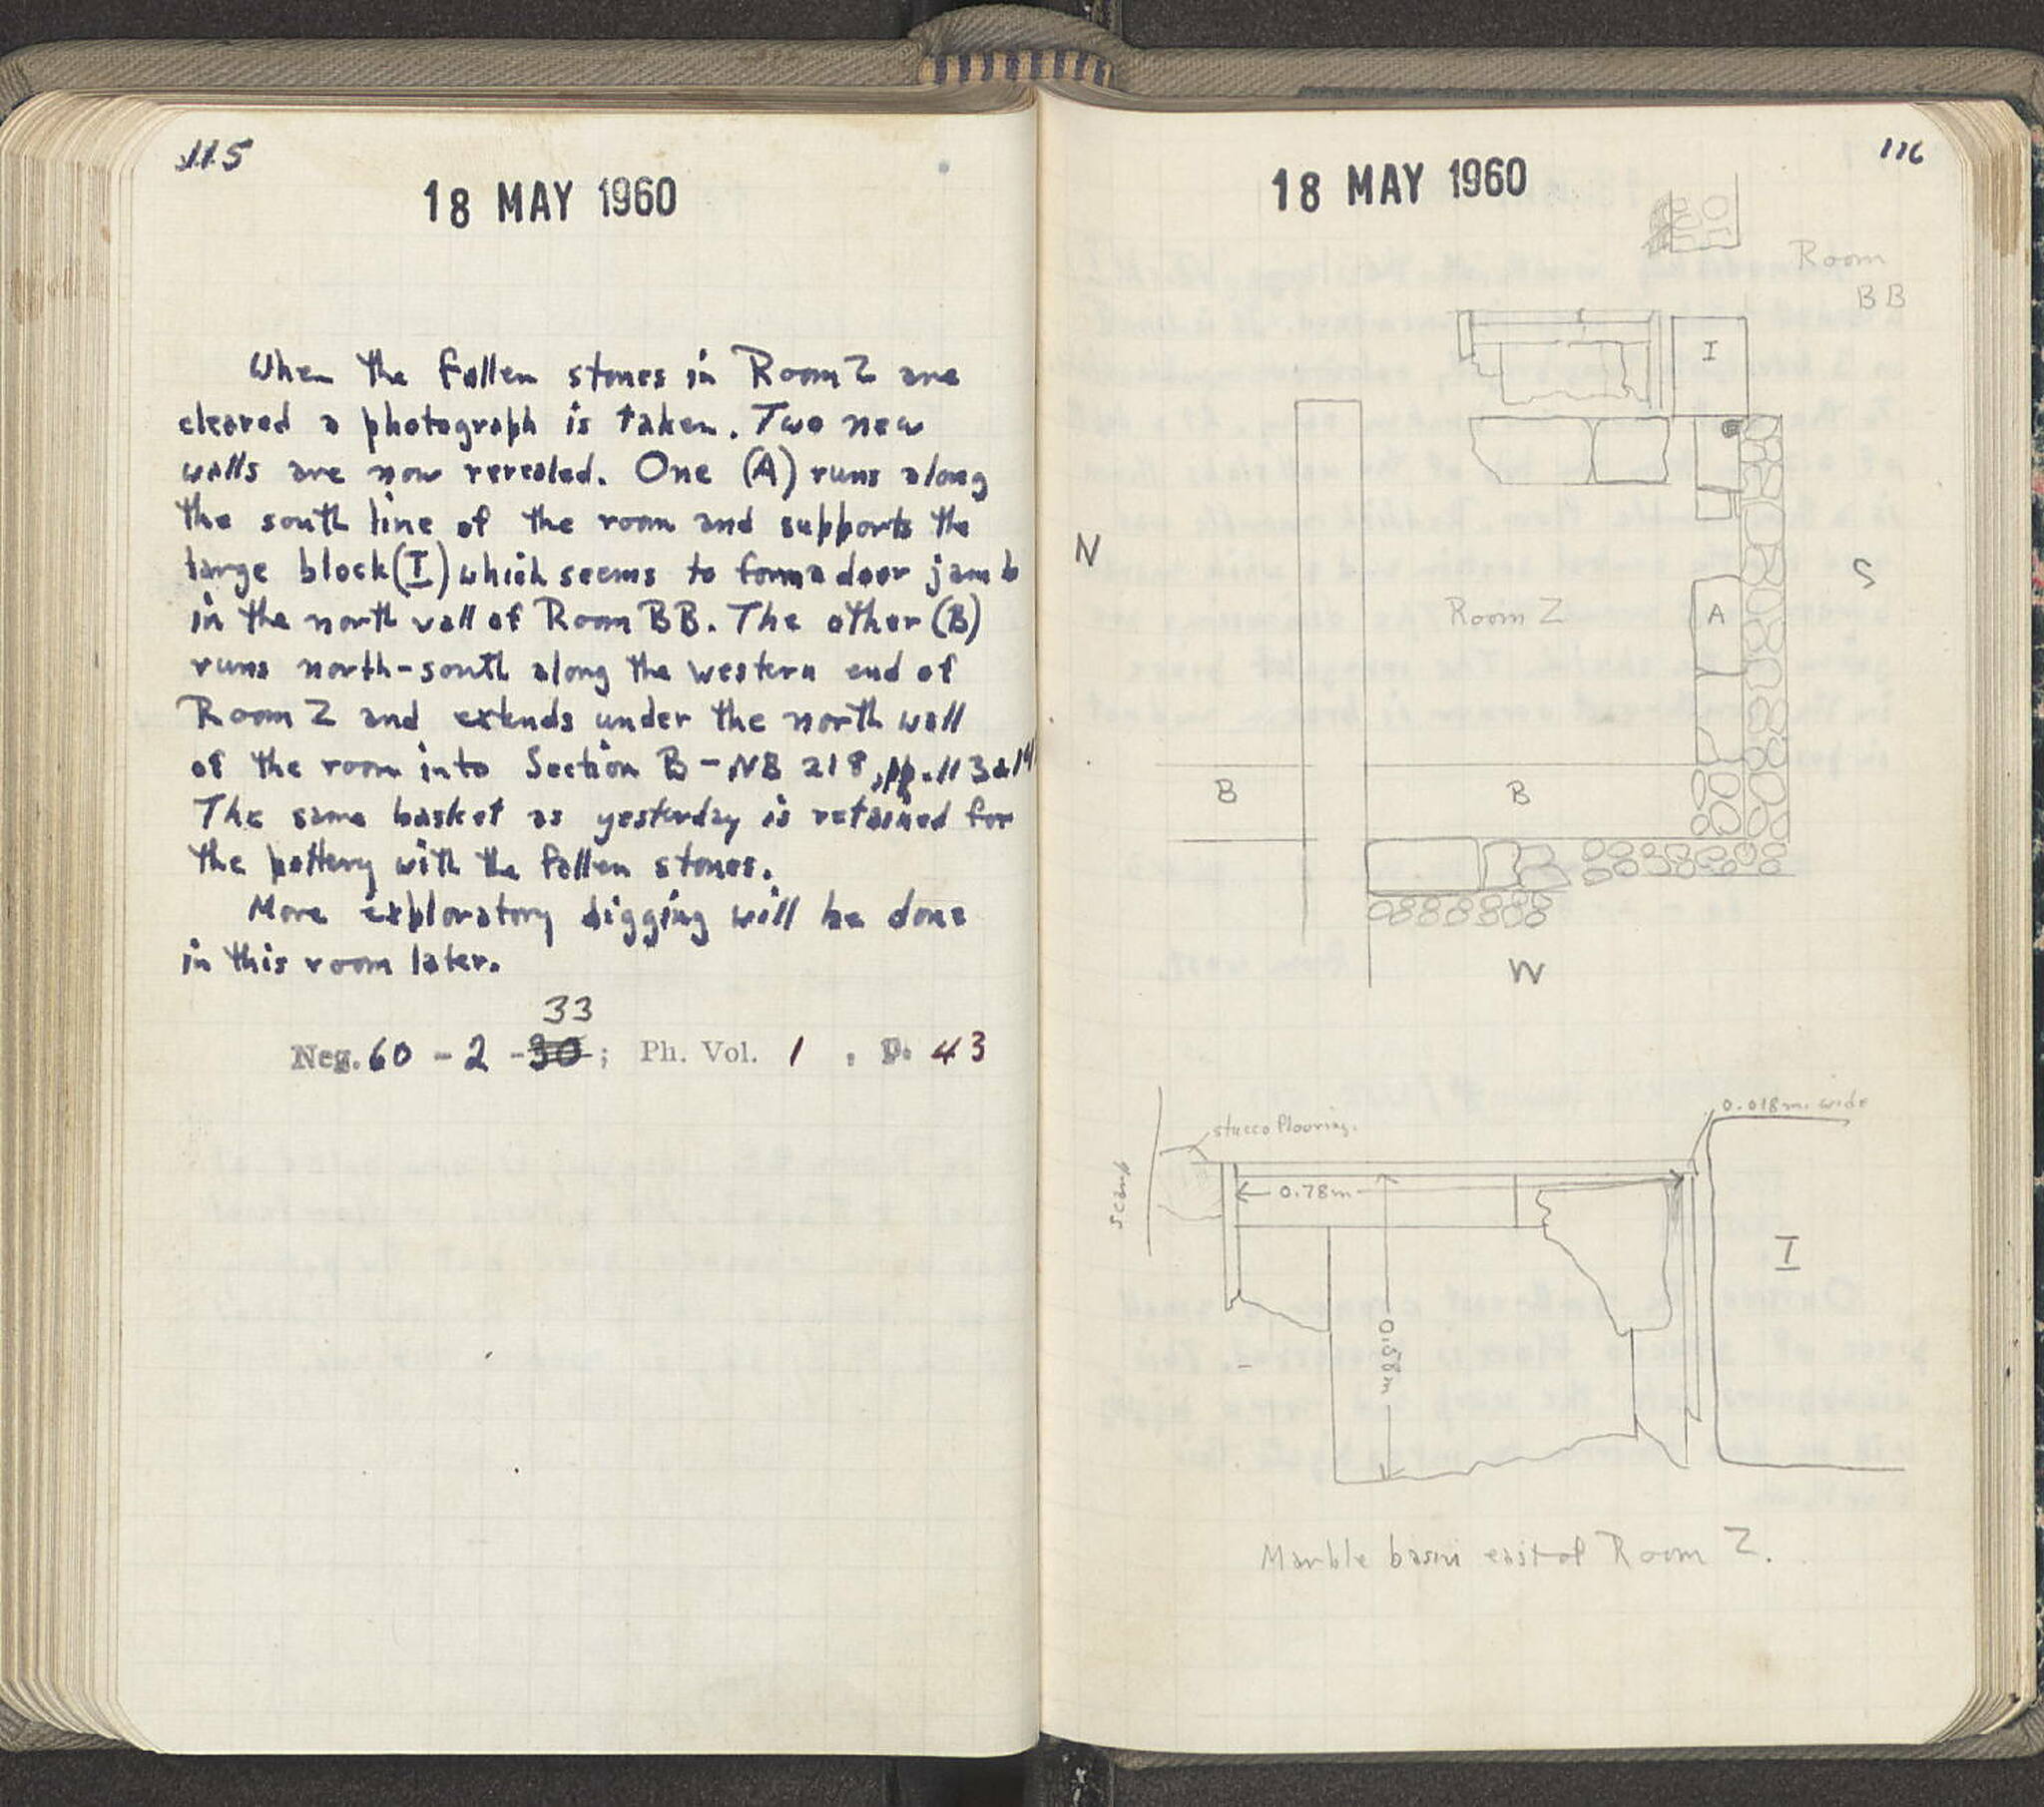 115
18 MAY 1960
When the fallen stones in Room Z are
cleared a photograph is taken. Two new
walls are now revealed. One (A) runs along
the south line of the room and supports the
large block (I) which seems to form a door jamb
in the north wall of Room BB. The other (B)
runs north-south along the western end of
Room Z and extends under the north wall
of the room into Section B - NB 218, pp. 113 &
The same basket as yesterday is retained for
the pottery with the fallen stones.
More exploratory digging will be done
in this room later.
33
Neg. 60 - 2 - 30 ; Ph. Vol. 1 , p. 43
116
18 MAY 1960
Room
BB
I
N
S
Room Z
A
B
B
W
0.018m. wide
stucco flooring.
scarp
0.78m
I
0.58m
Marble basin east of Room Z.